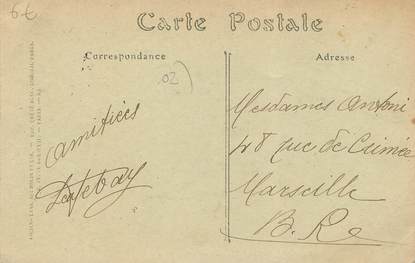 6€
Carte Postale
Correspondance
Adresse
02
amitiées
Mesdames Antoni
48 rue de Crimée
Marseille
B. Re